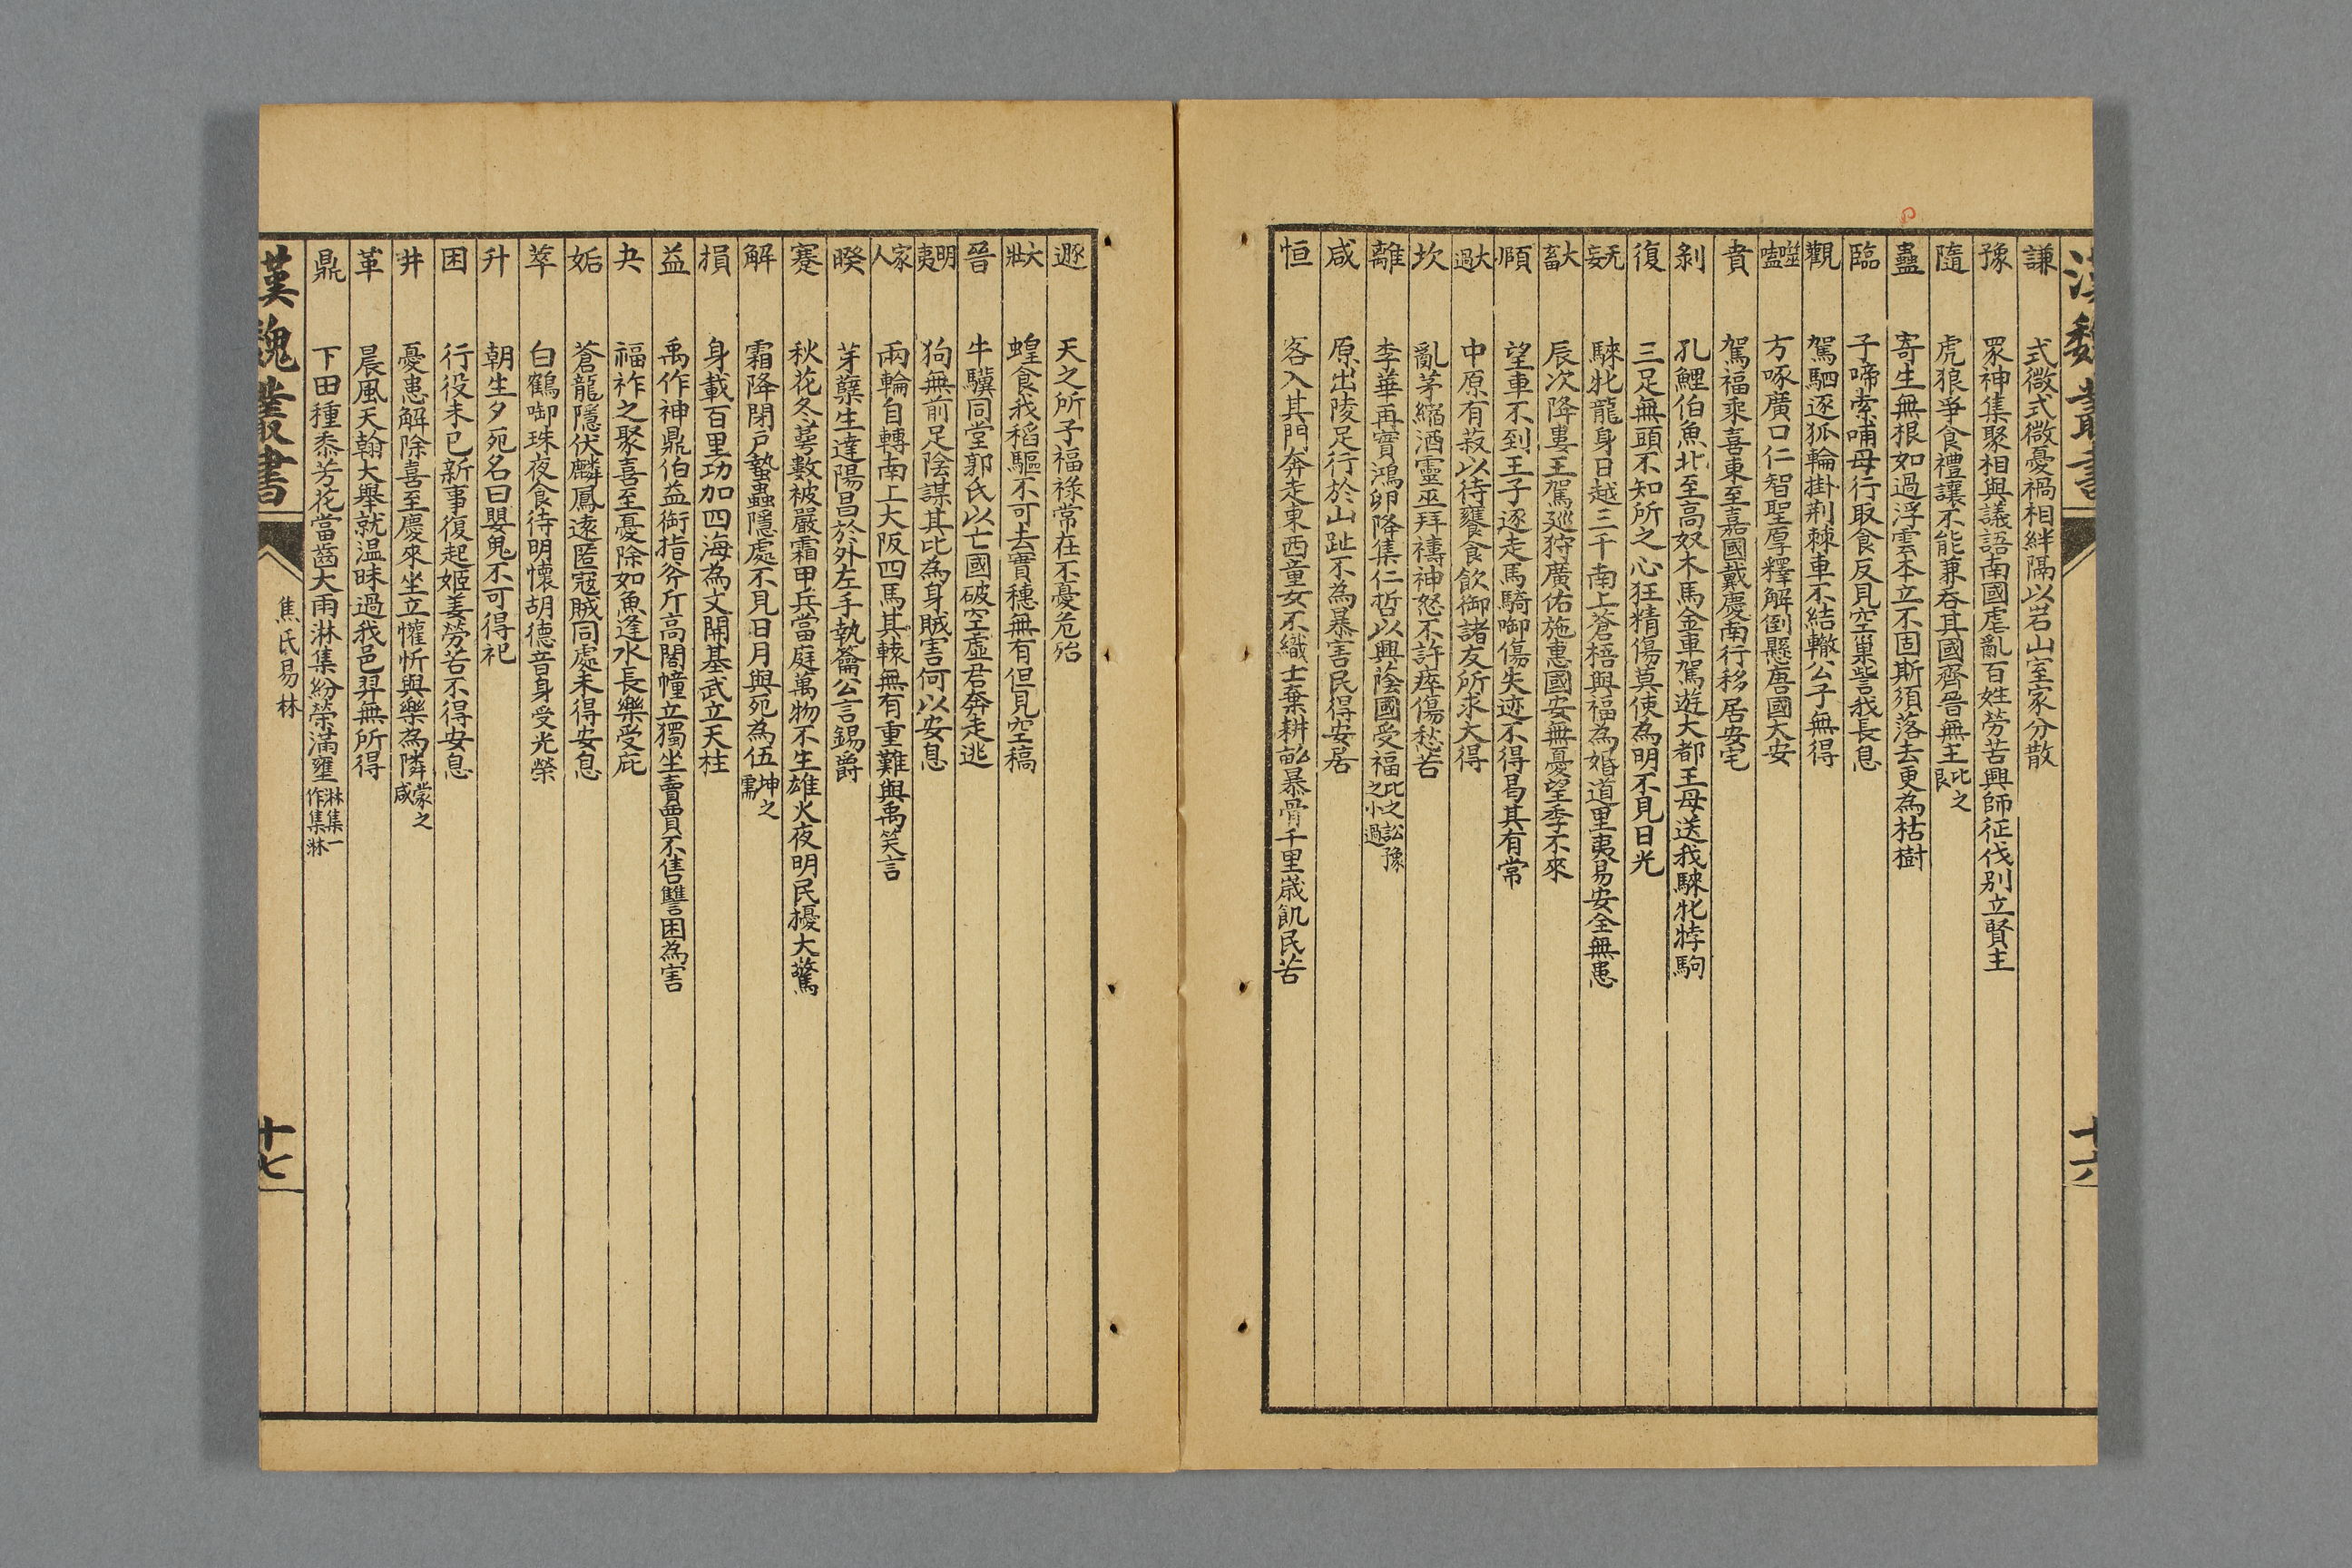 漢魏叢書
十六
謙 式微式微憂禍相絆隔以岩山室家分散
豫 眾神集聚相與議語南國虐亂百姓勞苦興師征伐别立賢主
隨 虎狼爭食禮讓不能兼吞其國齊晉無主比之艮
蠱 寄生無根如過浮雲本立不固斯須落去更為枯樹
臨 子啼索哺母行取食反見空巢訾我長息
觀 駕駟逐狐輪掛荆棘車不結轍公子無得
噬嗑 方啄廣口仁智聖厚釋解倒懸唐國大安
賁 駕福乘喜東至嘉國戴慶南行移居安宅
剝 孔鯉伯魚北至高奴木馬金車駕遊大都王母送我騋牝牸駒
復 三足無頭不知所之心狂精傷莫使為明不見日光
无妄 騋牝龍身日越三千南上蒼梧與福為婚道里夷易安全無患
大畜 辰次降婁王駕巡狩廣佑施惠國安無憂望季不來
頤 望車不到王子逐走馬騎啣傷失迹不得曷其有常
大過 中原有菽以待饔食飲御諸友所求大得
坎 亂茅縮酒靈巫拜禱神怒不許瘁傷愁苦
離 李華再實鴻卵降集仁哲以興蔭國受福比之訟豫之小過
咸 原出陵足行於山趾不為暴害民得安居
恒 客入其門奔走東西童女不織士棄耕畝暴骨千里歲飢民苦
遯 天之所予福祿常在不憂危殆
大壯 蝗食我稻驅不可去實穗無有但見空稿
晉 牛驥同堂郭氏以亡國破空虛君奔走逃
明夷 狗無前足陰謀其北為身賊害何以安息
家人 兩輪自轉南上大阪四馬其轅無有重難與禹笑言
睽 芽蘖生達陽昌於外左手執籥公言錫爵
蹇 秋花冬萼數被嚴霜甲兵當庭萬物不生雄火夜明民擾大驚
解 霜降閉戶蟄蟲隱處不見日月與死為伍坤之需
損 身載百里功加四海為文開基武立天柱
益 禹作神鼎伯益銜指斧斤高閣幢立獨坐賣買不售讐困為害
夬 福祚之聚喜至憂除如魚逢水長樂受庇
姤 蒼龍隱伏麟鳳遠匿寇賊同處未得安息
萃 白鶴啣珠夜食待明懷胡德音身受光榮
升 朝生夕死名曰嬰鬼不可得祀
困 行役未已新事復起姬姜勞苦不得安息
井 憂患解除喜至慶來坐立懽忻與樂為隣蒙之咸
革 晨風天翰大舉就温昧過我邑羿無所得
鼎 下田種黍芳花當齒大雨淋集紛榮滿壅淋集一作集淋
漢魏叢書
焦氏易林
十七